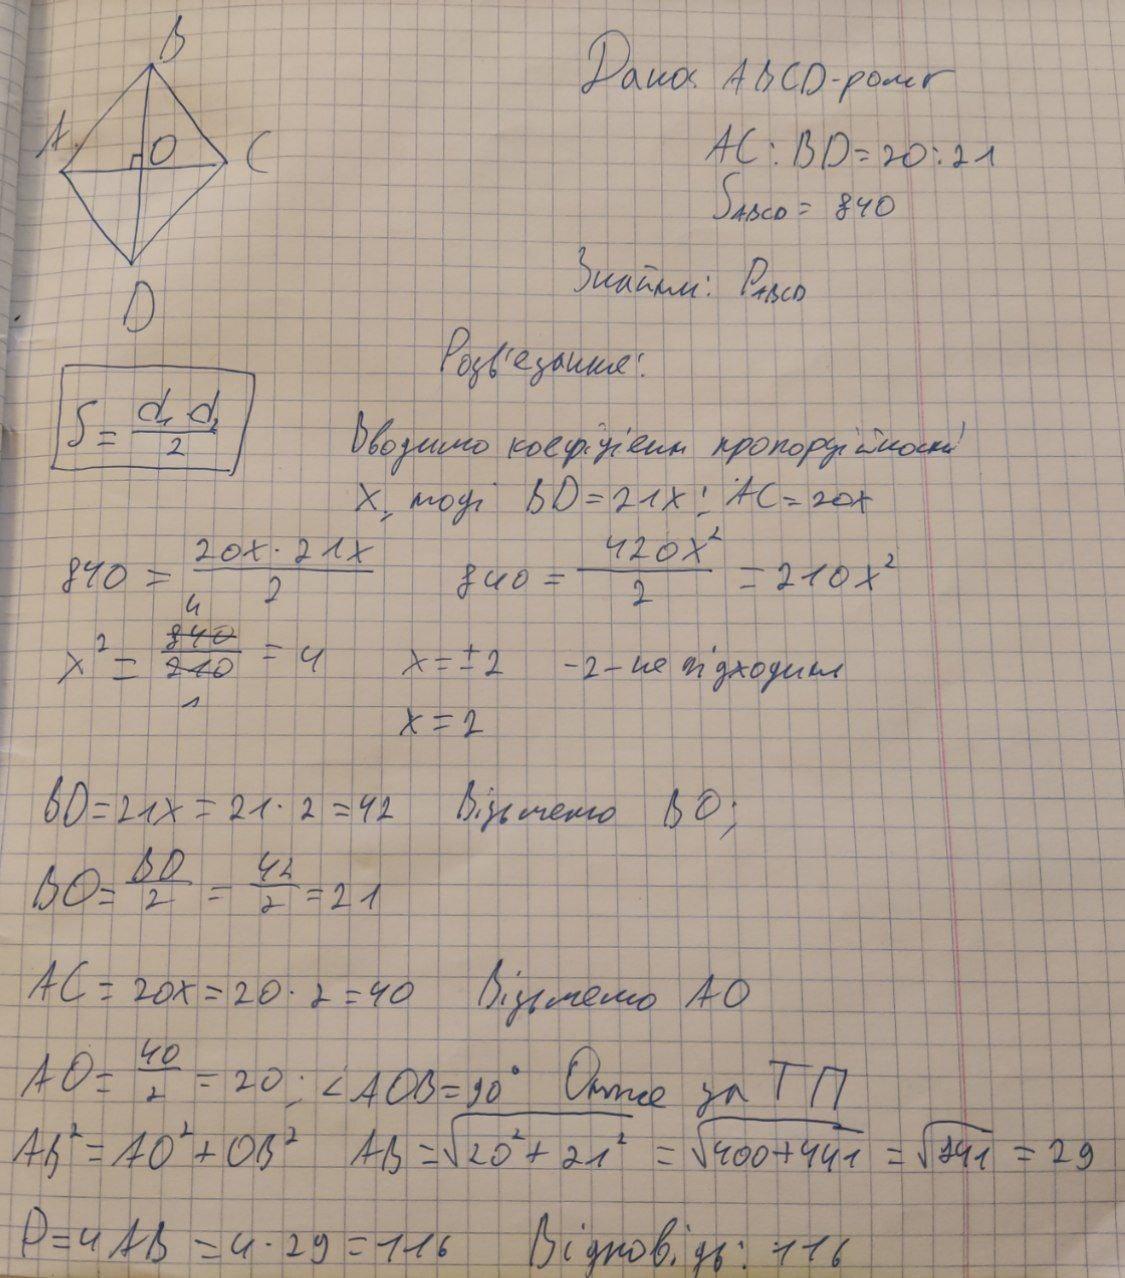 B
A
O
C
D
Дано: ABCD-ромб
AC : BD = 20 : 21
S ABCD = 840
Знайти: P ABCD
Розв'язання:
S = d₁ d₂ / 2
Вводимо коефіцієнт пропорційності
x, тоді BD = 21x; AC = 20x
840 = 20x · 21x / 2    840 = 420x² / 2 = 210x²
x² = 840 / 210 = 4    x = ±2    -2 - не підходить
4
1
x = 2
BD = 21x = 21 · 2 = 42    Візьмемо BO;
BO = BD / 2 = 42 / 2 = 21
AC = 20x = 20 · 2 = 40    Візьмемо AO
AO = 40 / 2 = 20; ∠AOB = 90°    Отже за ТП
AB² = AO² + OB²    AB = √20² + 21² = √400 + 441 = √841 = 29
P = 4 AB = 4 · 29 = 116    Відповідь: 116